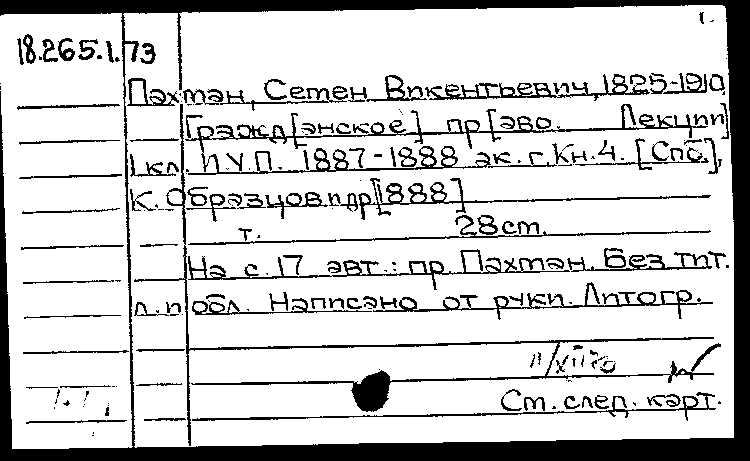 1.
18.265.1.73
Пахман, Семен Викентьевич, 1825-1910
Гражд[анское] пр[аво. Лекции]
I кл. И.У.П. 1887-1888 ак. г. Кн. 4. [Спб.],
К. Образцов. и др [1888]
т. 28 ст.
На с. 17 авт.: пр. Пахман. Без тит.
л. и обл. Написано от руки. Литогр.
11/XII 70
См. след. карт.